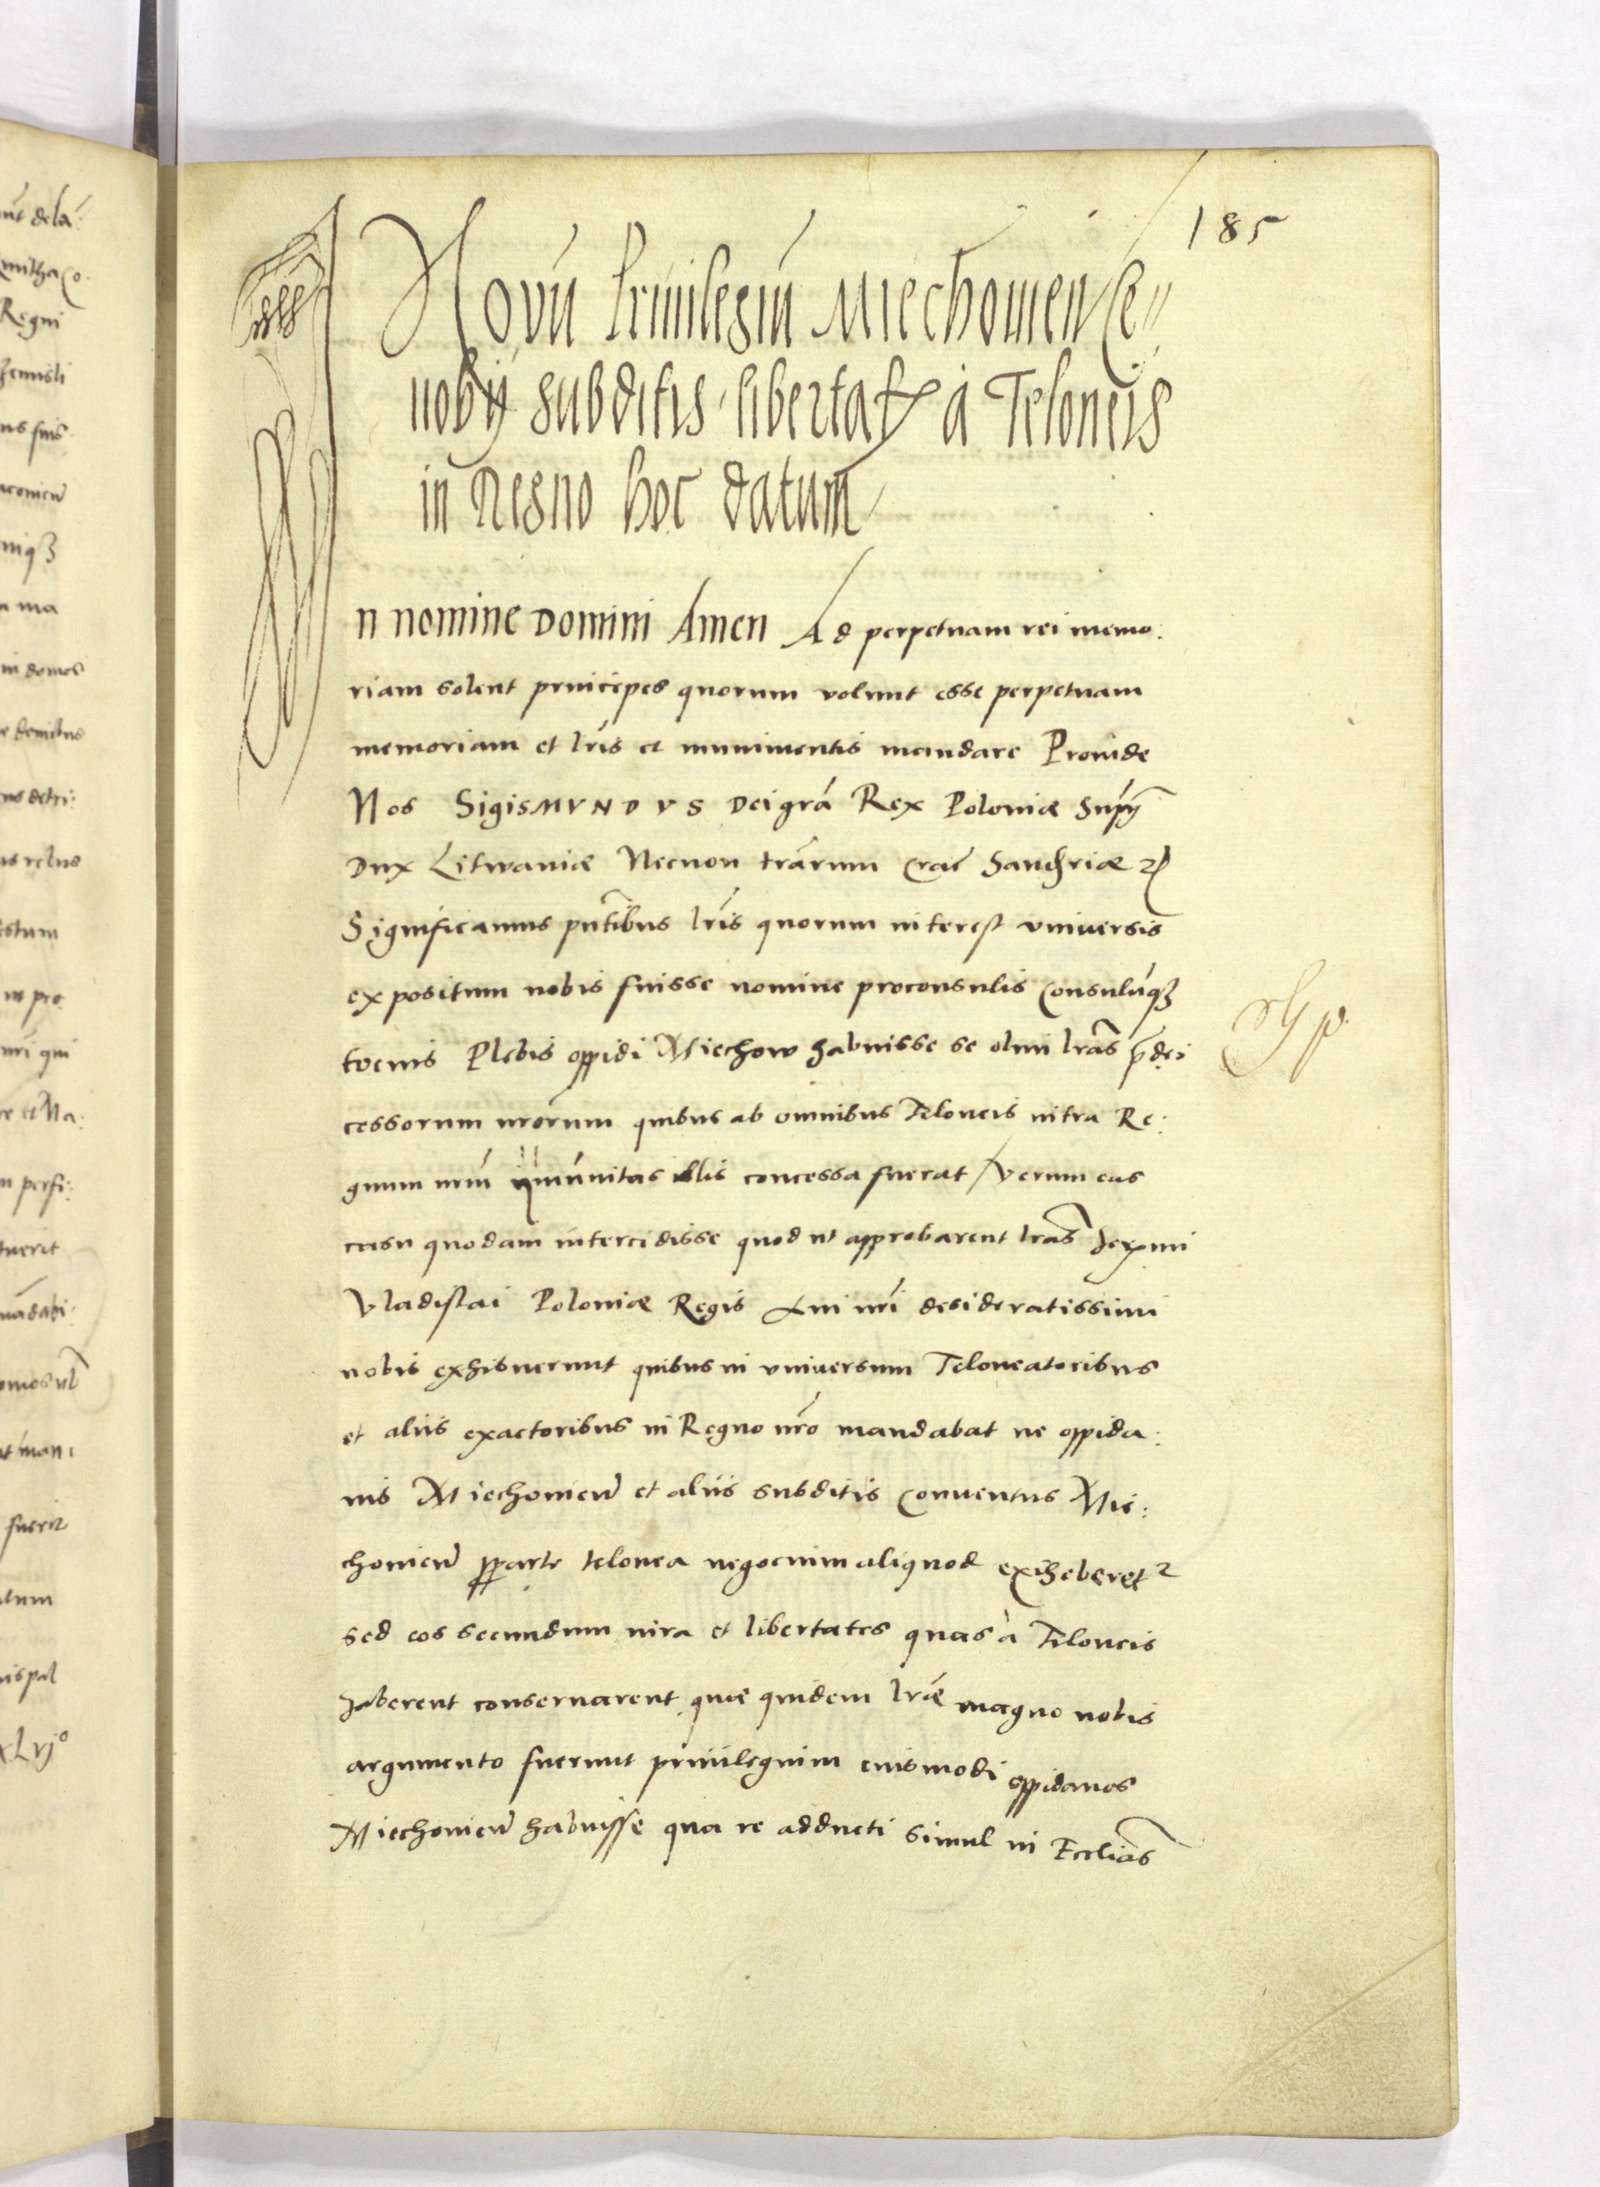 185
Novũ Privilegiũ Miechovien Ce„
nobij subditis libertatis à Teloneis
in Regno hoc datum
In nomine Domini Amen Ad perpetuam rei memo:
riam solent principes quorum volunt esse perpetuam
memoriam et lr̃is et munimentis mandare Proinde
Nos SigisMVNDVS Dei grã Rex Poloniæ Supr̃
Dux Litwaniæ Necnon trãrum Crac̃ Sandr̃iæ
Significamus pñtibus lr̃is quorum interest vniversis
expositum nobis fuisse nomine proconsulis Consulũqꝫ
tocius Plebis oppidi Miechow habuisse se olim lrãs p̃de
cessorum nrõrum quibus ab omnibus Teloneis intra Re:
gnum nrũ immũnitas illis concessa fuerat / Verum eas
casu quodam intercidisse quod ut approbarent lrãs
Vladislai Poloniæ Regis Aui nr̃i desideratissimi
nobis exhibuerunt quibus in vniversum Teloneatoribus
et aliis exactoribus in Regno nr̃o mandabat ne oppida:
nis Miechovien̄ et aliis subditis Conventus Mie:
chovien̄ telonea negocium aliquod exhiberet²
sed eos secundum iura et libertates quas à Teloneis
haberent conservarent quæ quidem lr̃æ magno nobis
argumento fuerunt privilegium eiusmodi oppidanos
Miechovien̄ habuisse qua re adducti simul in Eccliãs